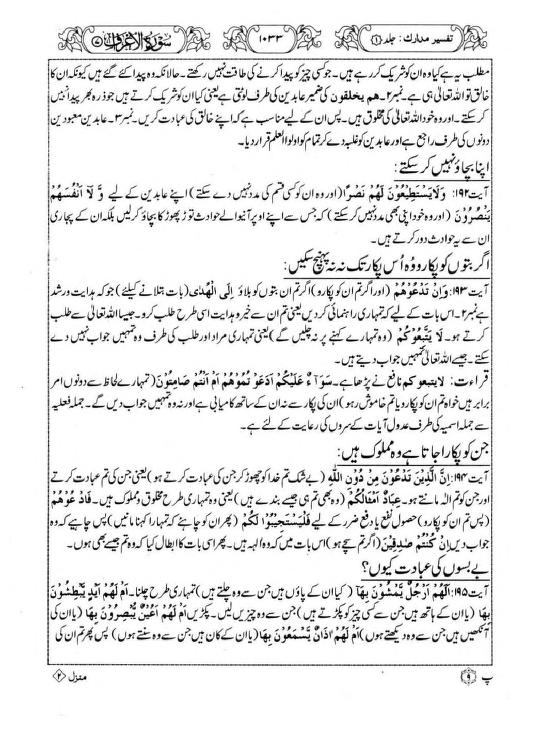 تفسیر مدارک: جلد ۱ ۱۰۳۳ سورۃ الاعراف ۷
مطلب یہ ہے کیا وہ ان کو شریک کر رہے ہیں۔ جو کسی چیز کو پیدا کرنے کی طاقت نہیں رکھتے۔ حالانکہ وہ پیدا کئے گئے ہیں کیونکہ ان کا
خالق تو اللہ تعالیٰ ہی ہے۔ نمبر۲۔ ھم یخلقون کی ضمیر عابدین کی طرف لوٹتی ہے یعنی کیا ان کو شریک کرتے ہیں جو ذرہ بھر پیدا نہیں
کر سکتے۔ اور وہ خود اللہ تعالیٰ کی مخلوق ہیں۔ پس ان کے لیے مناسب ہے کہ اپنے خالق کی عبادت کریں۔ نمبر۳۔ عابدین معبودین
دونوں کی طرف راجع ہے اور عابدین کو غلبہ دے کر تمام کو اولوا العلم قرار دیا۔
اپنا بچاؤ نہیں کر سکتے:
آیت۱۹۲: وَلَا یَسْتَطِیْعُوْنَ لَھُمْ نَصْرًا (اور وہ ان کو کسی قسم کی مدد نہیں دے سکتے) اپنے عابدین کے لیے وَّ لَآ اَنْفُسَھُمْ
یَنْصُرُوْنَ (اور وہ خود اپنی بھی مدد نہیں کر سکتے) کہ جس سے اپنے اوپر آنیوالے حوادث توڑ پھوڑ کا بچاؤ کر لیں بلکہ ان کے پجاری
ان سے یہ حوادث دور کرتے ہیں۔
اگر بتوں کو پکارو وہ اُس پکار تک نہ نہ پہنچ سکیں:
آیت۱۹۳: وَاِنْ تَدْعُوْھُمْ (اور اگر تم ان کو پکارو) اگر تم ان بتوں کو بلاؤ اِلَی الْھُدٰی (بات بتلانے کیلئے) جو کہ ہدایت و رشد
ہے نمبر۱۔ اس بات کے لیے کہ تمہاری راہنمائی کر دیں یعنی تم ان سے خیر و ہدایت اسی طرح طلب کرو۔ جیسا اللہ تعالیٰ سے طلب
کرتے ہو۔ لَا یَتَّبِعُوْکُمْ (وہ تمہارے کہنے پر نہ چلیں گے) یعنی تمہاری مراد اور طلب کی طرف وہ تمہیں جواب نہیں دے
سکتے۔ جیسے اللہ تعالیٰ تمہیں جواب دیتے ہیں۔
قراءت: لایتبعوکم نافع نے پڑھا ہے۔ سَوَآءٌ عَلَیْکُمْ اَدَعَوْ تُمُوْھُمْ اَمْ اَنْتُمْ صَامِتُوْنَ (تمہارے لحاظ سے دونوں امر
برابر ہیں خواہ تم ان کو پکارو یا تم خاموش رہو) ان کی پکار سے نہ ان کے ساتھ کامیابی ہے اور نہ وہ تمہیں جواب دیں گے۔ جملہ فعلیہ
سے جملہ اسمیہ کی طرف عدول آیات کے سروں کی رعایت کے لئے ہے۔
جن کو پکارا جاتا ہے وہ مملوک ہیں:
آیت۱۹۴: اِنَّ الَّذِیْنَ تَدْعُوْنَ مِنْ دُوْنِ اللّٰہِ (بے شک تم خدا کو چھوڑ کر جن کی عبادت کرتے ہو) یعنی جن کی تم عبادت کرتے
اور جن کو تم الٰہ مانتے ہو۔ عِبَادٌ اَمْثَالُکُمْ (وہ بھی تم ہی جیسے بندے ہیں) یعنی وہ تمہاری طرح مخلوق و مملوک ہیں۔ فَادْعُوْھُمْ
(پس تم ان کو پکارو) حصول نفع یا دفع ضرر کے لیے فَلْیَسْتَجِیْبُوْا لَکُمْ (پھر ان کو چاہئے کہ تمہارا کہنا مانیں) پس چاہیے کہ وہ
جواب دیں اِنْ کُنْتُمْ صٰدِقِیْنَ (اگر تم سچے ہو) اس بات میں کہ وہ الٰہہ ہیں۔ پھر اسی بات کا ابطال کیا کہ وہ تم جیسے بھی ہوں۔
بے بسوں کی عبادت کیوں؟
آیت۱۹۵: اَلَھُمْ اَرْجُلٌ یَّمْشُوْنَ بِھَا (کیا ان کے پاؤں ہیں جن سے وہ چلتے ہیں) تمہاری طرح چلنا۔ اَمْ لَھُمْ اَیْدٍ یَّبْطِشُوْنَ
بِھَا (یا ان کے ہاتھ ہیں جن سے کسی چیز کو پکڑتے ہیں) جن سے وہ چیزیں لیں۔ پکڑیں اَمْ لَھُمْ اَعْیُنٌ یُّبْصِرُوْنَ بِھَا (یا ان کی
آنکھیں ہیں جن سے وہ دیکھتے ہوں) اَمْ لَھُمْ اٰذَانٌ یَّسْمَعُوْنَ بِھَا (یا ان کے کان ہیں جن سے وہ سنتے ہوں) پس پھر تم ان کی
پ ۹ منزل ۲